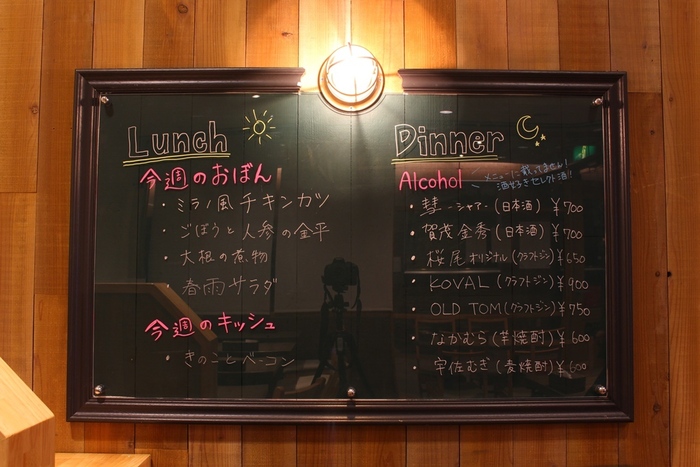 Lunch
今週のおばん
・ミラノ風チキンカツ
・ごぼうと人参の金平
・大根の煮物
・春雨サラダ
今週のキッシュ
・きのことベーコン
Dinner
Alcohol
メニューに載ってません！
酒好きセレクト酒!!
・彗 -シャアー (日本酒) ¥700
・賀茂金秀 (日本酒) ¥700
・桜尾オリジナル (クラフトジン) ¥650
・KOVAL (クラフトジン) ¥900
・OLD TOM (クラフトジン) ¥750
・なかむら (芋焼酎) ¥600
・宇佐むぎ (麦焼酎) ¥600